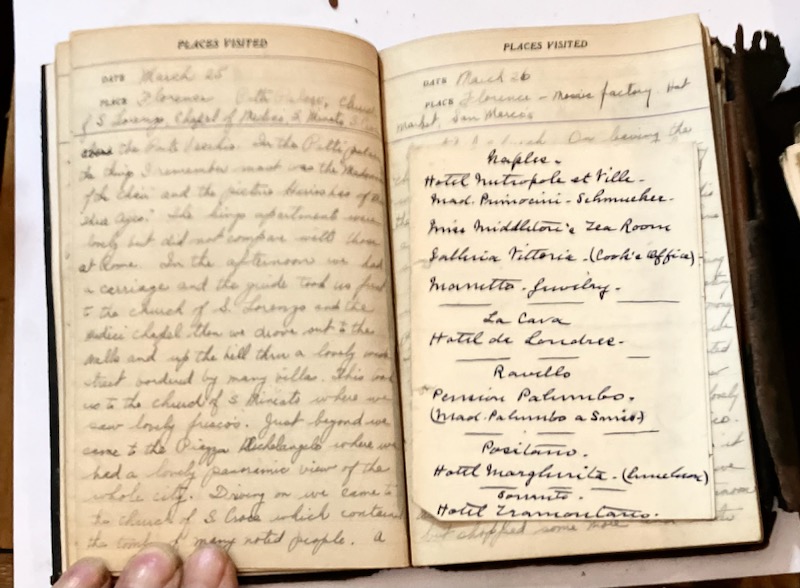 PLACES VISITED
DATE March 25
PLACE Florence Pitti Palace, Church
of S. Lorenzo, Chapel of Medici, S. Miniato,
the Ponte Vecchio. In the Pitti palace
the thing I remember most was the Madonna
of the Chair and the picture
The kings apartments were
lovely but did not compare with those
at Rome. In the afternoon we had
a carriage and the guide took us first
to the church of S. Lorenzo and the
chapel then we drove out to the
walls and up the hill thru a lovely
street bordered by many villas. This
us to the church of S Miniato where we
saw lovely fresco's. Just beyond we
came to the Piazza Michelangelo where we
had a lovely panoramic view of the
whole city. Driving on we came to
the church of S. Croce which contains
the tombs of many noted people. A
PLACES VISITED
DATE March 26
PLACE Florence - Mosaic factory. Hat
Market, San Marcos
On leaving the
Naples -
Hotel Metropole et Ville -
Mad. - Schmucker -
Miss Middleton's Tea Room
Galleria Vittoria - (Cook's Office) -
- Jewelry -
La Cava
Hotel de Londres -
Ravello
Pension Palumbo.
(Mad. Palumbo a Swiss)
Positano.
Hotel Margherita -
Sorrento.
Hotel Tramontano.
but chopped some more